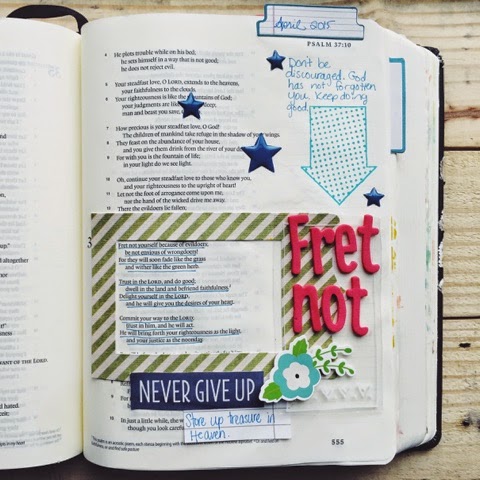 April 2015
PSALM 37:10
Don't be
discouraged. God
has not forgotten
you. Keep doing
good.
4 He plots trouble while on his bed;
he sets himself in a way that is not good;
he does not reject evil.
5 Your steadfast love, O LORD, extends to the heavens,
your faithfulness to the clouds.
6 Your righteousness is like the mountains of God;
your judgments are like the
man and beast you save,
7 How precious is your steadfast love, O God!
The children of mankind take refuge in the shadow of your wings.
8 They feast on the abundance of your house,
and you give them drink from the river of your
9 For with you is the fountain of life;
in your light do we see light.
10 Oh, continue your steadfast love to those who know you,
and your righteousness to the upright of heart!
11 Let not the foot of arrogance come upon me,
nor the hand of the wicked drive me away.
12 There the evildoers lie fallen;
Fret not yourself because of evildoers;
be not envious of wrongdoers!
For they will soon fade like the grass
and wither like the green herb.
Trust in the LORD, and do good;
dwell in the land and befriend faithfulness.
Delight yourself in the LORD,
and he will give you the desires of your heart.
Commit your way to the LORD;
trust in him, and he will act.
He will bring forth your righteousness as the light,
and your justice as the noonday.
Fret
not
NEVER GIVE UP
10 In just a little while, the
though you look
Store up treasure in
Heaven.
555